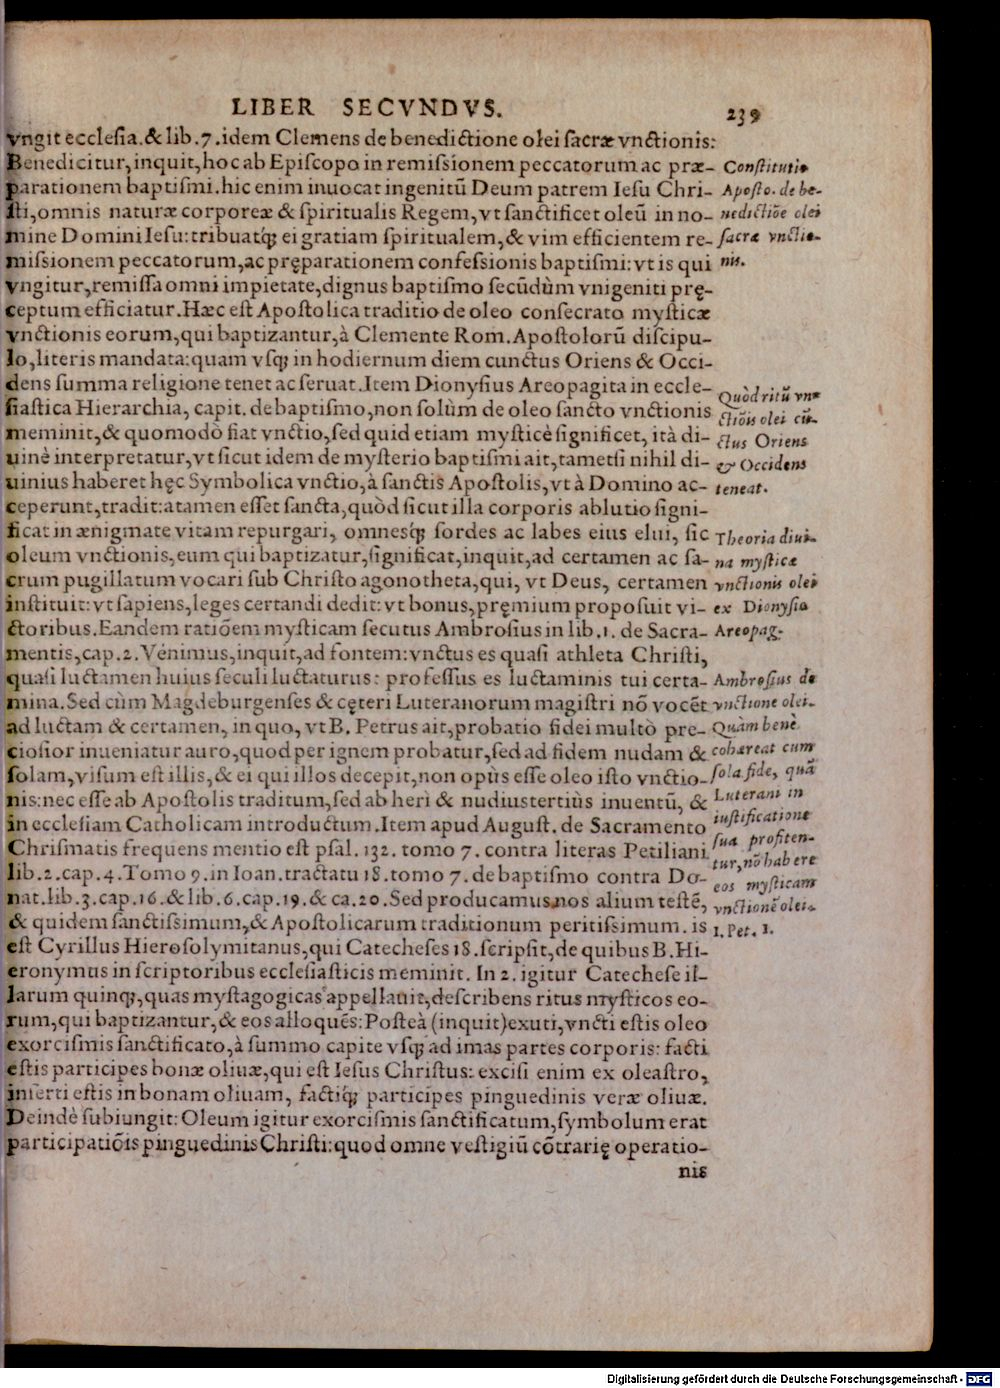 LIBER SECVNDVS. 239
vngit ecclesia.&lib.7.idem Clemens de benedictione olei sacræ vnctionis:
Benedicitur,inquit,hoc ab Episcopo in remissionem peccatorum ac præ-
parationem baptismi.hic enim inuocat ingenitū Deum patrem Iesu Chri-
sti,omnis naturæ corporeæ & spiritualis Regem,vt sanctificet oleū in no-
mine Domini Iesu:tribuatq́; ei gratiam spiritualem,& vim efficientem re-
missionem peccatorum,ac pręparationem confessionis baptismi:vt is qui
vngitur,remissa omni impietate,dignus baptismo secūdùm vnigeniti prę-
ceptum efficiatur.Hæc est Apostolica traditio de oleo consecrato mysticæ
vnctionis eorum,qui baptizantur,à Clemente Rom.Apostolorū discipu-
lo,literis mandata:quam vsq; in hodiernum diem cunctus Oriens & Occi-
dens summa religione tenet ac seruat.Item Dionysius Areopagita in eccle-
siastica Hierarchia, capit. de baptismo,non solùm de oleo sancto vnctionis
meminit,& quomodò fiat vnctio,sed quid etiam mysticè significet, ità di-
uinè interpretatur,vt sicut idem de mysterio baptismi ait,tametsi nihil di-
uinius haberet hęc Symbolica vnctio,à sanctis Apostolis,vt à Domino ac-
ceperunt,tradit:atamen esset sancta,quòd sicut illa corporis ablutio signi-
ficat in ænigmate vitam repurgari, omnesq́; sordes ac labes eius elui, sic
oleum vnctionis,eum qui baptizatur,significat,inquit,ad certamen ac sa-
crum pugillatum vocari sub Christo agonotheta,qui, vt Deus, certamen
instituit:vt sapiens,leges certandi dedit:vt bonus,pręmium proposuit vi-
ctoribus.Eandem ratiōem mysticam secutus Ambrosius in lib.1. de Sacra-
mentis,cap.2.Venimus,inquit,ad fontem:vnctus es quasi athleta Christi,
quasi luctamen huius seculi luctaturus: professus es luctaminis tui certa-
mina.Sed cùm Magdeburgenses & cęteri Luteranorum magistri nō vocēt
ad luctam & certamen, in quo, vt B. Petrus ait,probatio fidei multò pre-
ciosior inueniatur auro,quod per ignem probatur,sed ad fidem nudam &
solam,visum est illis,& ei qui illos decepit,non opùs esse oleo isto vnctio-
nis:nec esse ab Apostolis traditum,sed ab heri & nudiustertiùs inuentū, &
in ecclesiam Catholicam introductum.Item apud August. de Sacramento
Chrismatis frequens mentio est psal. 132. tomo 7. contra literas Petiliani
lib.2.cap.4.Tomo 9.in Ioan.tractatu 18.tomo 7.de baptismo contra Do-
nat.lib.3.cap.16.&lib.6.cap.19.& ca.20.Sed producamus nos alium testē,
& quidem sanctissimum,& Apostolicarum traditionum peritissimum. is
est Cyrillus Hierosolymitanus,qui Catecheses 18.scripsit,de quibus B.Hi-
eronymus in scriptoribus ecclesiasticis meminit. In 2. igitur Catechese il-
larum quinq;,quas mystagogicas appellauit,describens ritus mysticos eo-
rum,qui baptizantur,& eos alloquēs:Posteà (inquit)exuti,vncti estis oleo
exorcismis sanctificato,à summo capite vsq; ad imas partes corporis: facti
estis participes bonæ oliuæ,qui est Iesus Christus: excisi enim ex oleastro,
inserti estis in bonam oliuam, factiq́; participes pinguedinis veræ oliuæ.
Deindè subiungit:Oleum igitur exorcismis sanctificatum,symbolum erat
participatiōis pinguedinis Christi:quod omne vestigiū cōtrarię operatio-
nis
Constitutio
Aposto. de be-
nedictiōe olei
sacræ vnctio-
nis.
Quòd ritū vn-
ctiōis olei cū-
ctus Oriens
& Occidens
teneat.
Theoria diui-
na mysticæ
vnctionis olei
ex Dionysio
Areopag.
Ambrosius de
vnctione olei.
Quàm benè
cohæreat cum
sola fide, quā
Luterani in
iustificatione
sua profiten-
tur,nō habere
eos mysticam
vnctionē olei.
1.Pet. 1.
Digitalisierung gefördert durch die Deutsche Forschungsgemeinschaft - DFG